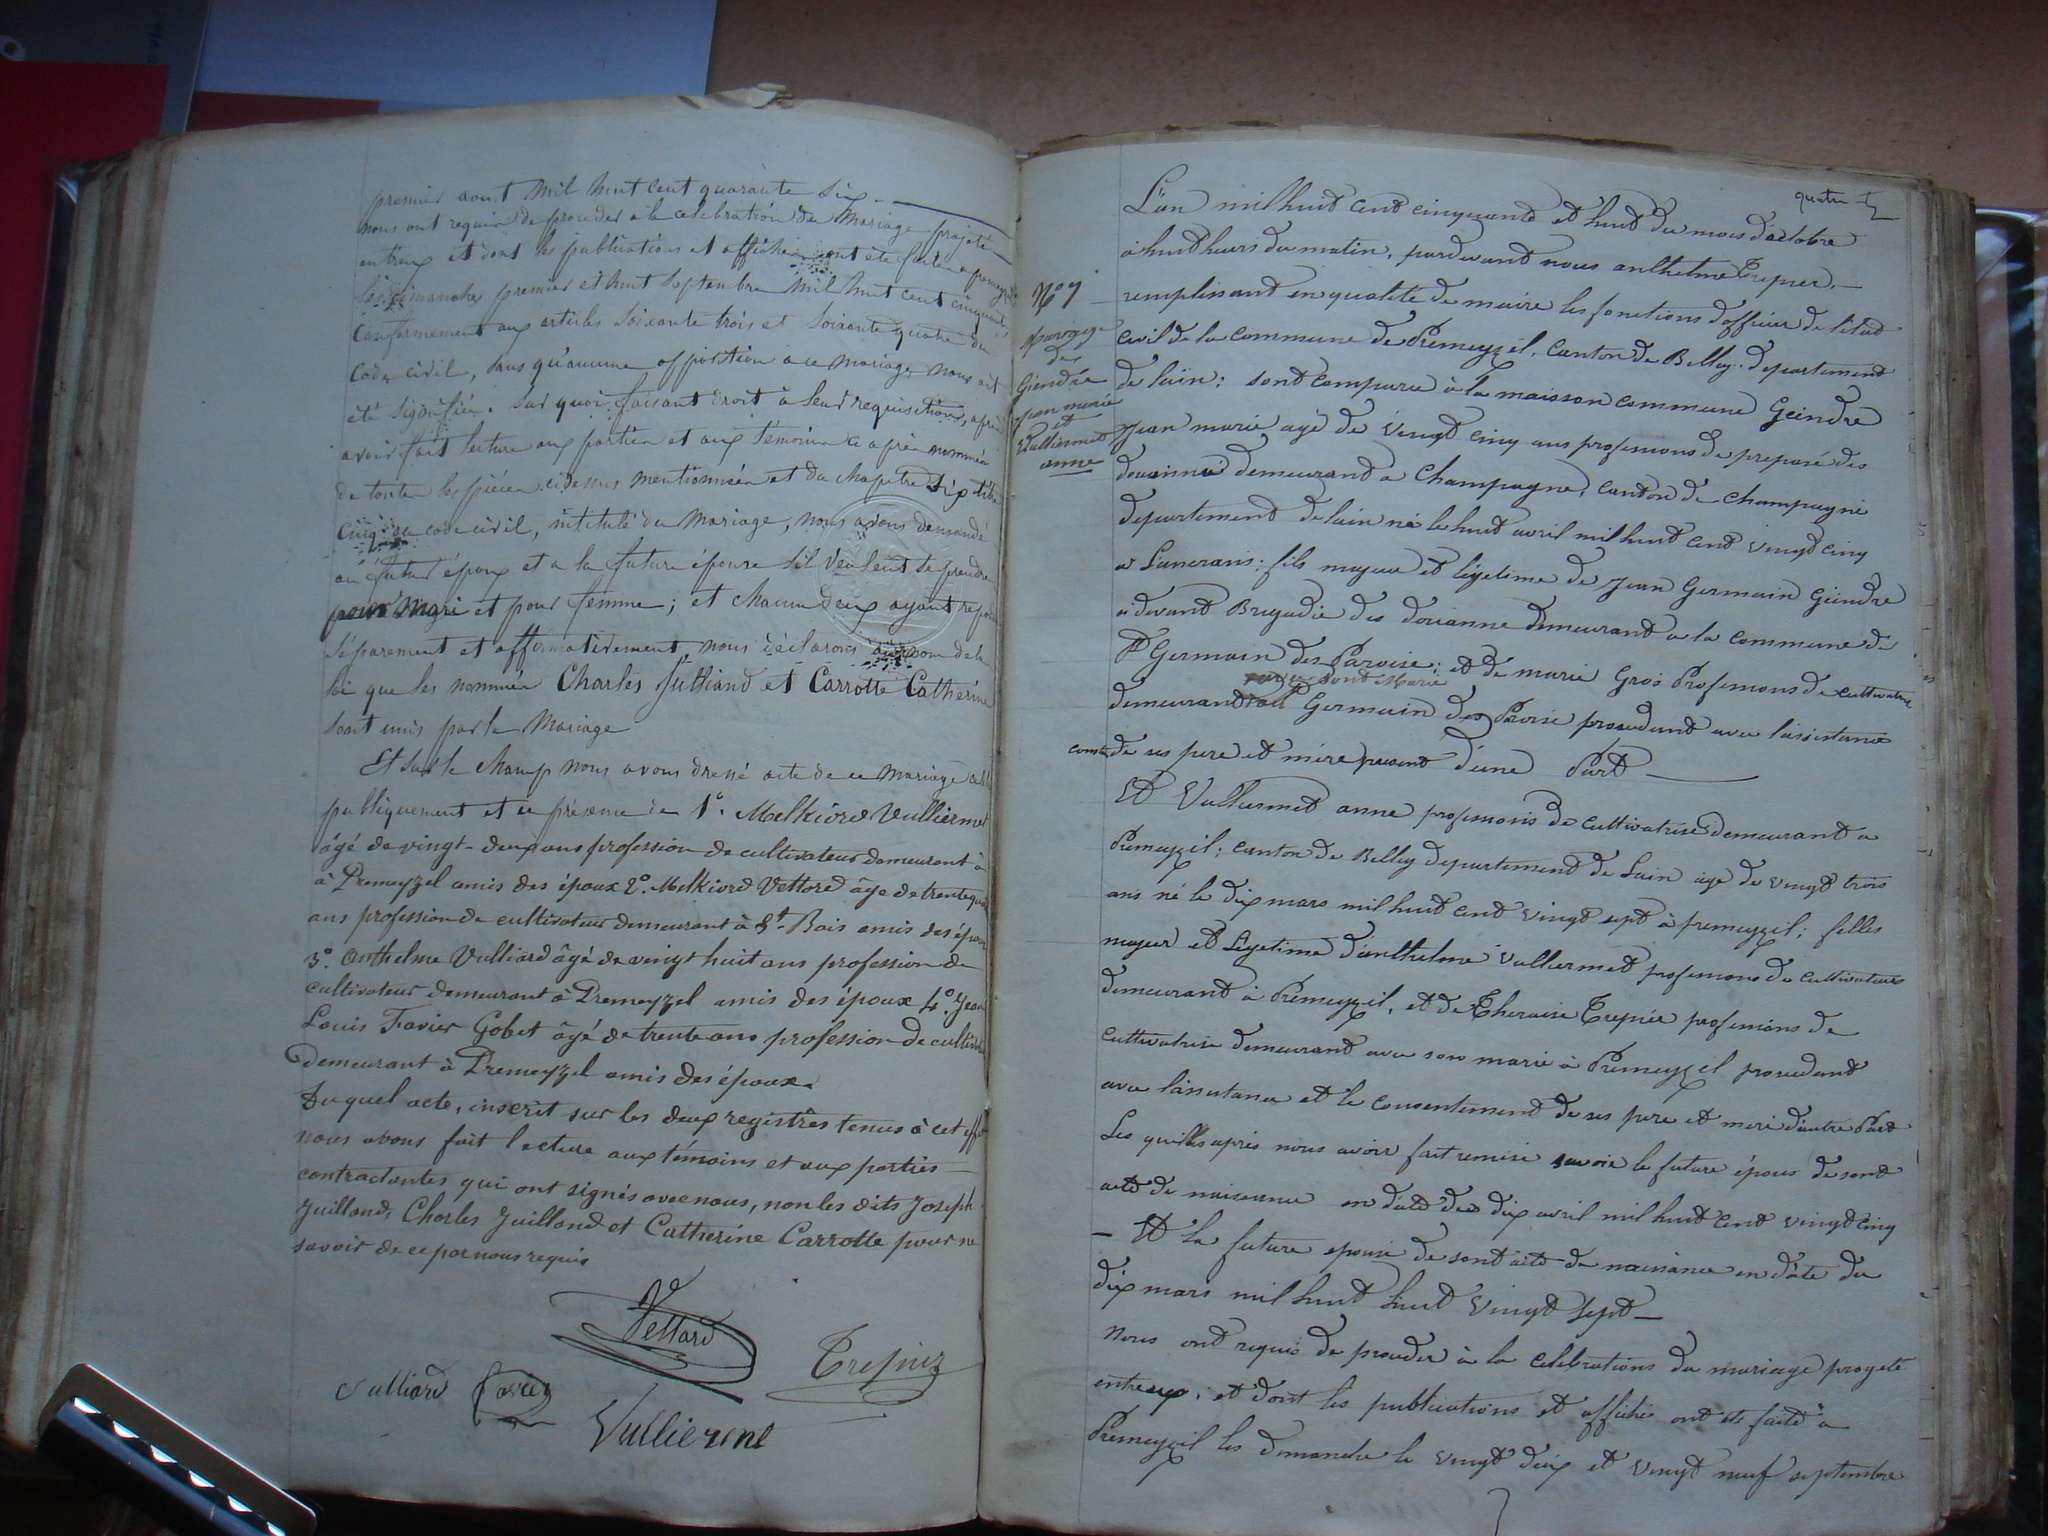 premier aout mil huit cent quarante six
nous ont requis de proceder à la celebration du Mariage projeté
entreux et dont les publications et affiches ont été faites a
les dimanches premier et huit Septembre mil huit cent cinquante
Conformement aux articles soixante trois et soixante quatre du
code civil, sans qu'aucune opposition à ce mariage nous ait
été signifiée. Sur quoi faisant droit à leur requisition, après
avoir fait lecture aux parties et aux témoins ci après nommés
de toutes les pièces ci dessus mentionnées et du chapitre six titre
cinq du code civil, intitulé du Mariage, nous avons demandé
au futur époux et a la future épouse s'il veulent se prendre
pour Mari et pour femme; et chacun deux ayant repondu
séparement et affirmativement, nous déclarons au nom de la
loi que les nommés Charles Julliand et Carrotte Catherine
sont unis par le Mariage
Et sur le champ nous avons dressé acte de ce mariage
publiquement et en présence de 1°. Melkiord Vulliermet
âgé de vingt-deux ans profession de cultivateur demeurant à
à Premeyzel amis des époux 2°. Melkiord Vettord âge de trente quatre
ans profession de cultivateur demeurant à St. Bois amis des époux
3°. Anthelme Vulliard âgé de vingt huit ans profession de
cultivateur demeurant à Premeyzel amis des époux 4°. Jean
Louis Favier Gobet âgé de trente ans profession de cultivateur
demeurant à Premeyzel amis des époux.
Duquel acte, inscrit sur les deux registres tenus à cet effet
nous avons fait lecture aux témoins et aux parties
contractantes qui ont signés avec nous, non les dits Joseph
Juilland, Charles Juilland et Catherine Carrotte pour ne
savoir de ce par nous requis
Vettard
Trepiez
Vulliard Favier
Vulliermet
quatre
L'an mil huit cent cinquante et huit du mois d'octobre
à huit heurs du matin, pardevant nous anthelme Trepier,
N° 7
remplissant en qualité de maire les fonctions d'officier de l'état
Mariage
civil de la commune de Prémeyzil, canton de Belley, departement
de
Giendre
de l'ain: sont comparu à la maisson commune Geindre
jean marie
et
Vulliermet
anne
Jean marie agé de vingt cinq ans professions de preposé des
douainne demeurant a Champagne, canton de Champagne
departement de lain né le huit avril mil huit cent vingt cinq
a Lancrans; fils majeur et légetime de Jean Germain Giendre
a devant Brigadié des douanne demeurant a la commune de
St Germain des Paroise; et de marie Gros Professions de cultivatrice
sont Marie
demeurant Germain des Paroise procedant avec l'assistance
const. de ses pere et mére present d'une Part
Et Vulliermet anne professions de cultivatrise demeurant a
Prémeyzil; canton de Belley departement de Lain age de vingt trois
ans né le dix mars mil huit cent vingt sept à premeyzil; filles
majeur et legetime d'anthelme Vulliermet professions de cultivateur
demeurant à Prémeyzil, et de Theraise Trepiér professions de
cultivatrise demeurant avec son marie à Prémeyzil procedant
avec l'assistance et le consentement de ses pere et mere d'autre Part
Les quelles après nous avoir fait remise savoir le future épous de sont
acte de naissance en date des dix avril mil huit cent vingt cinq
– Et la future epouse de sont acte de naissance en date du
dix mars mil huit huit vingt sept –
nous ont requis de proceder à la celebrations du mariage progeté
entreux, et dont les publications et affiche ont été faite a
Prémeyzil les dimanche le vingt deux et vingt neuf septembre